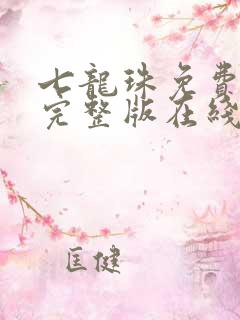 七龍珠免費
完整版在线
匡健